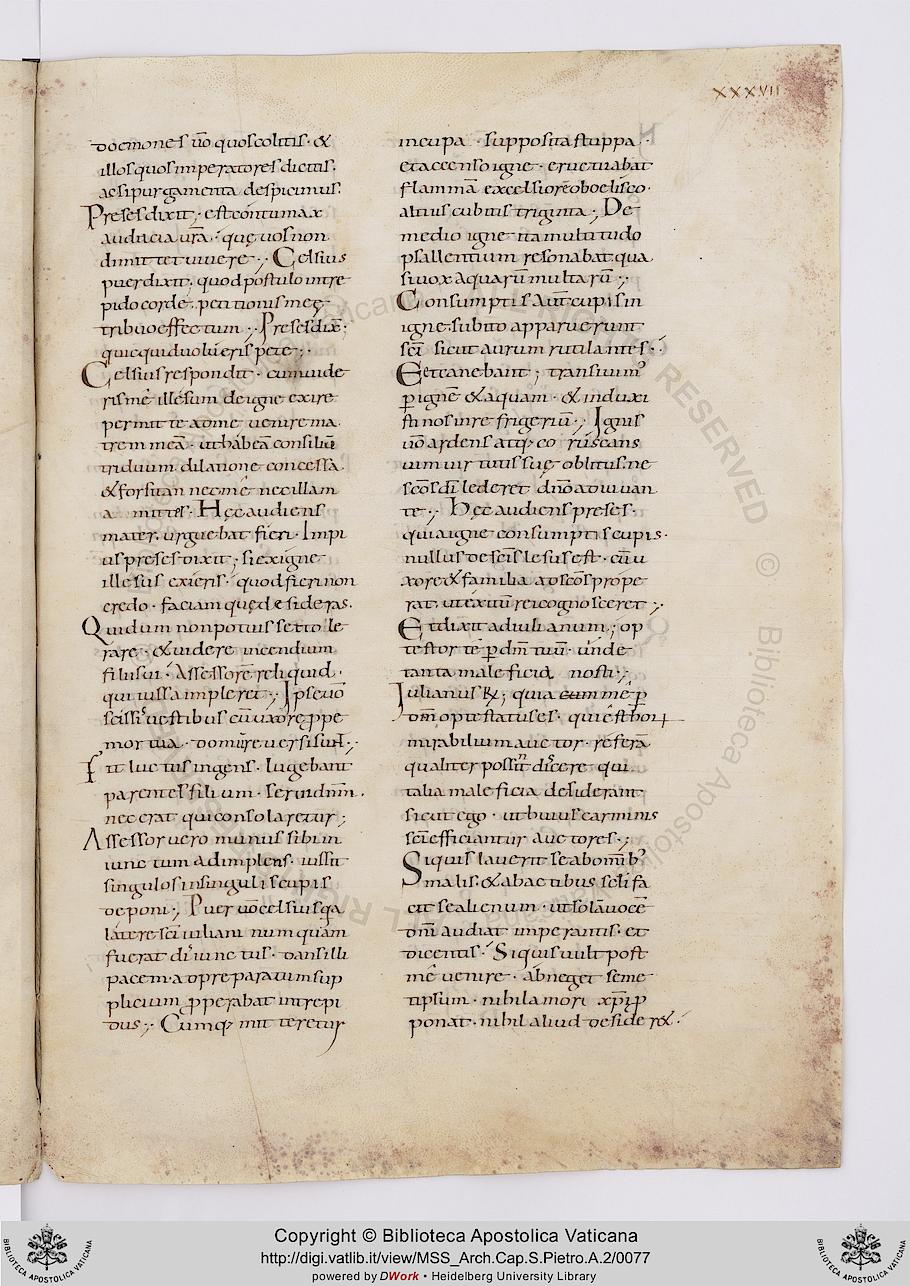 XXXVII
doemones ūo quos colitis · &
illos quos imperatores dictis.
ac si purgamenta despicimus.
Preses dixit; est contumax
audacia ur̄a · quę uos non
dimittet uiuere; Celsius
puer dixit · quod postulo intre
pido corde · petitionis meę
tribuo effectum; Preses dix̄;
quicquid uolueris pete;
Celsius respondit · cum uide
ris mé illésum de igne exire
permitte ad me uenire ma
trem meā · ut hábeā consiliū
triduum dilatione concessa.
& forsitan nec mé nec illam
a mittes · Hęc audiens
mater · urguebat fieri · Impi
us preses dixit; si ex igne
illesus exiens · quod fieri non
credo · faciam quę desideras.
Quid um non potius sęc tolle
rare · & uidere incendium
filii sui · Assessorē reliquid ·
qui iussa impleret; Ipse uō
scissis uestibus cū uxore ꝓpe
mortua · domū reuersi sunt;
Fit luctus ingens · lugebant
parentes filium · seruí dnm̄ .
nec erat qui consolaretur;
Assessor uero munus sibi in
iunctum adimplens · iussit
singulos in singulis cupis
deponi; Puer uō celsius qa
latere sc̄i iuliani numquam
fuerat diiunctus · dans illi
pacem · ad preparatum sup
plicium ꝓperabat intrepi
dus; Cumq; mitteretur
in cupa · supposita stuppa ·
et accenso igne · eructuabat
flammā excelsiorē oboelisco ·
altius cubitis triginta; De
medio igne ita multitudo
psallentium resonabat qua
si uox aquarū multarū;
Consumptis aut̄ cupis in
igne subito apparuerunt
sc̄i sicut aurum rutilantes
Et canebant; transiuim᾽
p ignē & aquam · & induxi
sti nos in refrigeriū; Ignis
uō ardens atq; coruscans
uim uirtutis suę oblitus · ne
sc̄os dī lederet dn̄o adiuuan
te; Hęc audiens preses ·
quia igne consumptis cupis ·
nullus de sc̄is lesus est · cū u
xore & familia ad sc̄os prope
rat · ut exitū rei cognosceret;
Et dixit ad iulianum; op
testor té p dm̄ tuū · unde
tanta maleficia nosti;
Iulianus ℟; quia eum mé p
dm̄ optestatus es · qui ést bon
mirabilium auctor · referā
qualiter possit discere qui
talia maleficia desiderant
sicut ego · ut huius carminis
sc̄i efficiantur auctores;
Siquis lauerit se ab omīb᾽
malis · & ab actibus sc̄li fa
cit se alienum · ut solā uocē
dm̄ audiat imperantis · et
dicentis · Siquis uult post
mé uenire · ábneget semę
tipsum · nihil amori xp̄i p
ponat · nihil aliud desider&
Copyright © Biblioteca Apostolica Vaticana
http://digi.vatlib.it/view/MSS_Arch.Cap.S.Pietro.A.2/0077
powered by DWork • Heidelberg University Library